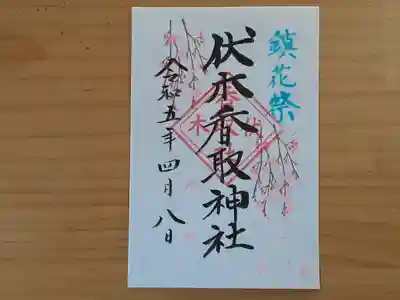 鎮花祭
伏木香取神社
令和五年四月八日